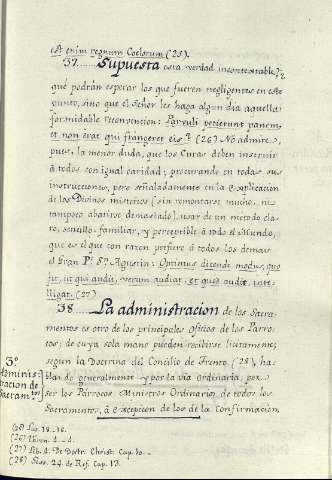 est enim regnum Coelorum (25).
37......Supuesta esta verdad incontestable,
qué podrán esperar los que fueren negligentes en este
punto, sino que el Señor les haga algun dia aquella
formidable reconvencion: Parvuli petierunt panem,
et non erat qui frangeret eis? (26) No admite,
pues, la menor duda, que los Curas deben instruir
á todos con igual caridad; procurando en todas sus
instrucciones, pero señaladamente en la explicacion
de los Divinos misterios (sin remontarse mucho, ni
tampoco abatirse demasiado) usar de un método cla-
ro, sencillo, familiar, y perceptible á todo el Mundo,
que es el que con razon prefiere á todos los demas
el Gran Pe. Sn. Agustin: Optimus dicendi modus, quo
fit, ut qui audit, verum audiat, et quod audit, inte-
lligat. (27)
38......La administracion de los Sacra-
mentos es otro de los principales Oficios de los Parro-
cos; de cuya sola mano pueden recibirse licitamente;
segun la Doctrina del Concilio de Trento. (28), ha-
llan dose generalmente y por la via ordinaria, por
ser los Parrocos Ministros Ordinarios de todos los
Sacramentos, á excepcion de los de la Confirmacion,
3º
Adminis-
tracion de
Sacramtos
(25) Luc. 18.-16.
(26) Thren. 4.-4.
(27) Lib. 4. De Doctr. Christ. Cap. 10.-
(28) Sess. 24. de Ref. Cap. 13.